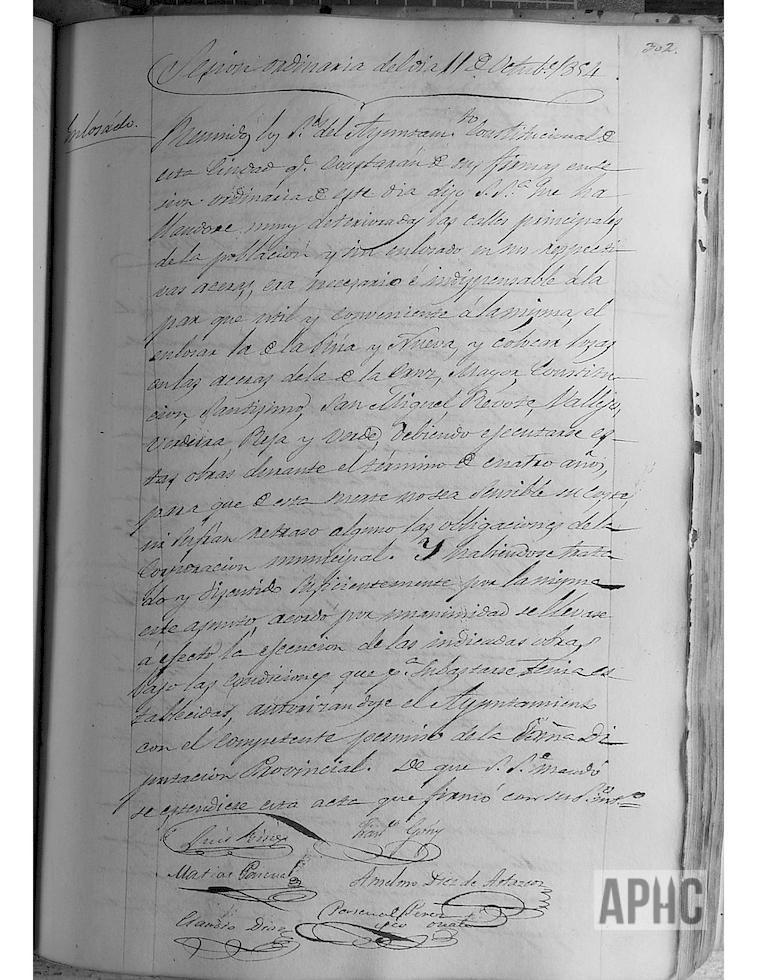 302.
Sesion ordinaria del dia 11 de Octube. 1854
Enlosado.
Reunidos los S.es del Ayuntam.to Constitucional de
esta Ciudad q.e constarán de sus firmas en se-
sion ordinaria de este dia dijo S. S.ª Que ha
llandose muy deterioradas las calles principales
de la poblacion y sin enlosado en sus respecti
vas aceras, era necesario é indispensable á la
par que util y conveniente á la misma, el
enlosar la de la Rúa y Nueva, y colocar losas
en las aceras de la de la Cruz, Mayor, Constitu-
cion, Santisimo, San Miguel, Rebote, Vallejo,
Verdeira, Reja y Verde, debiendo ejecutarse es-
tas obras durante el término de cuatro años,
para que de esta suerte no sea sensible su coste
ni sufran retraso alguno las obligaciones de la
Corporacion municipal. Y habiendose trata
do y discutido suficientemente por la misma
este asunto, acordó por unanimidad se llevase
á efecto la ejecucion de las indicadas obras
bajo las condiciones que p.ª subastarse tenia es
tablecidas, autorizandose el Ayuntamiento
con el competente permiso de la Excma Di
putacion Provincial. De que S. S.ª mandó
se estendiese esta acta que firmó con sus S.
Luis
Fran.co Goñy
Matias Pascual
Anselmo Diez de Artazcoz
Claudio
Pascual Perez
APHC